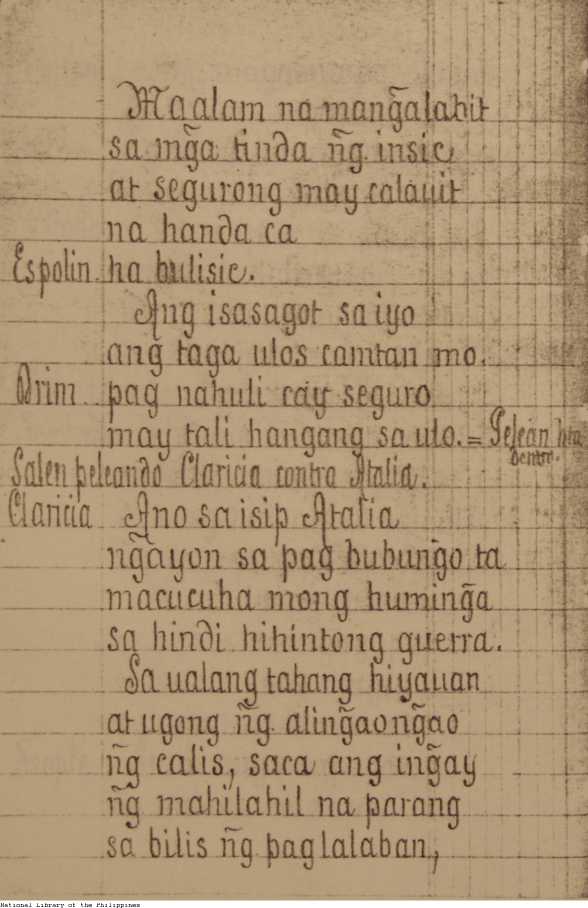 Maalam na mang̃alahit
sa mg̃a tinda ñg insic
at segurong may calauit
na handa ca
Espolin. ha bulisic.
Ang isasagot sa iyo
ang̃ taga ulos camtan mo.
Brim pag nahuli cay seguro
may tali hangang sa ulo. = Pelean hta
dentro.
Salen peleando Claricia contra Atalia.
Claricia Ano sa isip Atalia
ng̃ayon sa pag bubung̃o ta
macucuha mong huming̃a
sa hindi hihintong guerra.
Sa ualang tahang hiyauan
at ugong ñg aling̃aong̃ao
ñg calis, saca ang ing̃ay
ñg mahilahil na parang
sa bilis ñg pag lalaban,
National Library of the Philippines